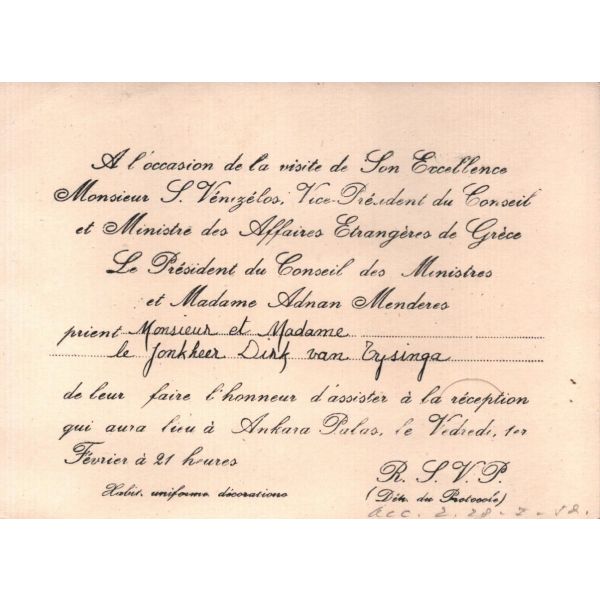 A l'occasion de la visite de Son Excellence
Monsieur S. Vénizélos, Vice-Président du Conseil
et Ministre des Affaires Etrangères de Grèce
Le Président du Conseil des Ministres
et Madame Adnan Menderes
prient Monsieur et Madame
le Jonkheer Dirk van Eysinga
de leur faire l'honneur d'assister à la réception
qui aura lieu à Ankara Palas, le Vedredi, 1er
Février à 21 heures
Habit, uniforme, décorations
R. S. V. P.
(Détn. du Protocole)
acc. 2. 28-